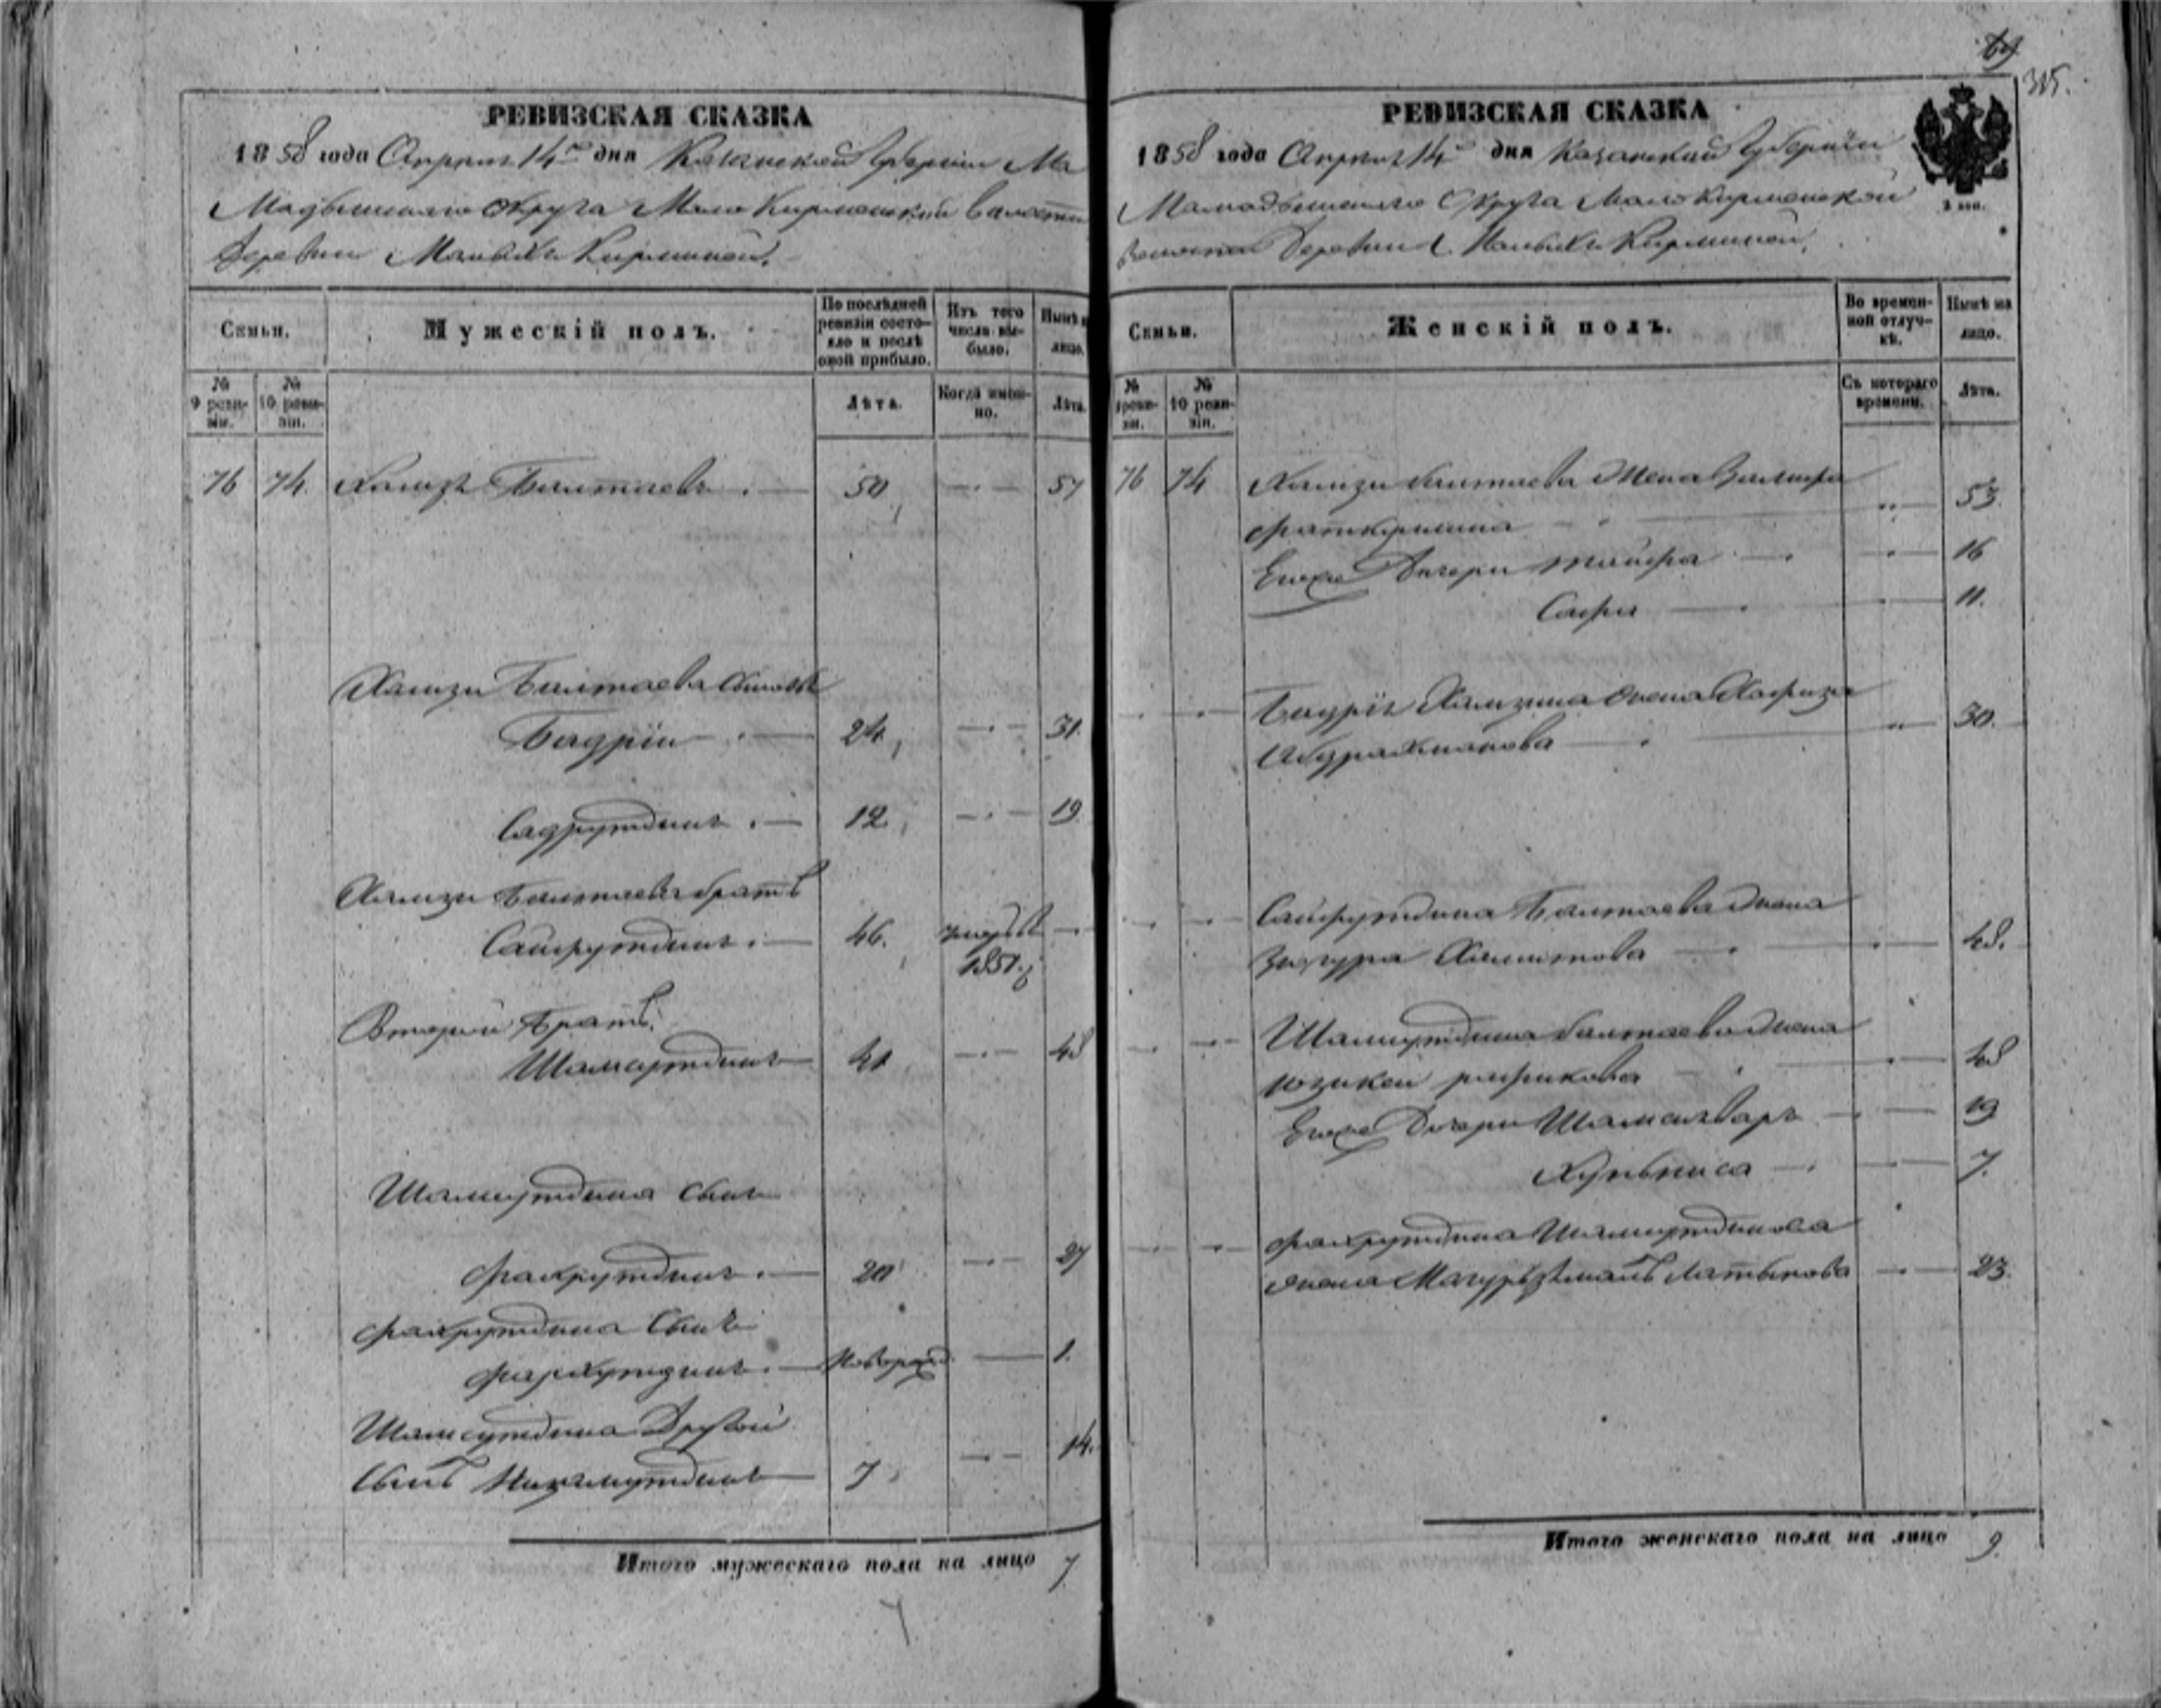 69
315.
РЕВИЗСКАЯ СКАЗКА
1858 года Апреля 14го дня Казанской Губернiи Ма
Мадышскаго Округа Мало Кирменской Волости
Деревни Малыхъ Кирменей.
Семьи.
Мужескiй полъ.
По послѣдней ревизiи состояло и послѣ оной прибыло.
Изъ того числа выбыло.
Нынѣ на лицо.
№ 9 ревизiи.
№ 10 ревизiи.
Лѣта.
Когда именно.
Лѣта.
76 74. Хамзя Биктаевъ. 50 57
Хамзи Биктаева Сыновья
Бадрiй 24 31.
Садрутдинъ. 12 19
Хамзи Биктаева братъ
Сайфутдинъ. 46. умеръ въ
1851.г
Второй Братъ.
Шамсутдинъ 41 48
Шамсутдина Сынъ
Фахрутдинъ. 20 27
Фахрутдина Сынъ
Фархутдинъ. Новорожд. 1.
Шамсутдина Другой
Сынъ Низамутдинъ 7 14.
Итого мужескаго пола на лицо 7
РЕВИЗСКАЯ СКАЗКА
1858 года Апреля 14го дня Казанской Губернiи
Мамадышскаго Округа Мало Кирменской
Волости Деревни Малыхъ Кирменей.
Семьи.
Женскiй полъ.
Во временной отлучкѣ.
Нынѣ на лицо.
№ 9 ревизiи.
№ 10 ревизiи.
Съ котораго времени.
Лѣта.
76 74 Хамзи Биктаева Жена
53.
Его Дочери 16
Сафи 11.
Бадрiя Хамзина жена Хафиза
Абдрахманова 30.
Сайфутдина Биктаева жена
Загура Халитова 48.
Шамсутдина Биктаева жена
рафикова 48
Его Дочери 19
7.
Фахрутдина Шамсутдинова
жена Латыпова 23.
Итого женскаго пола на лицо 9.